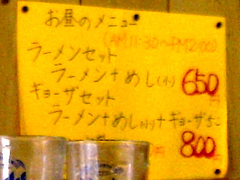 お昼のメニュー
(AM11:30〜PM2:00)
ラーメンセット
ラーメン+めし(小) 650円
ギョーザセット
ラーメン+めし(小)+ギョーザ5こ
800円